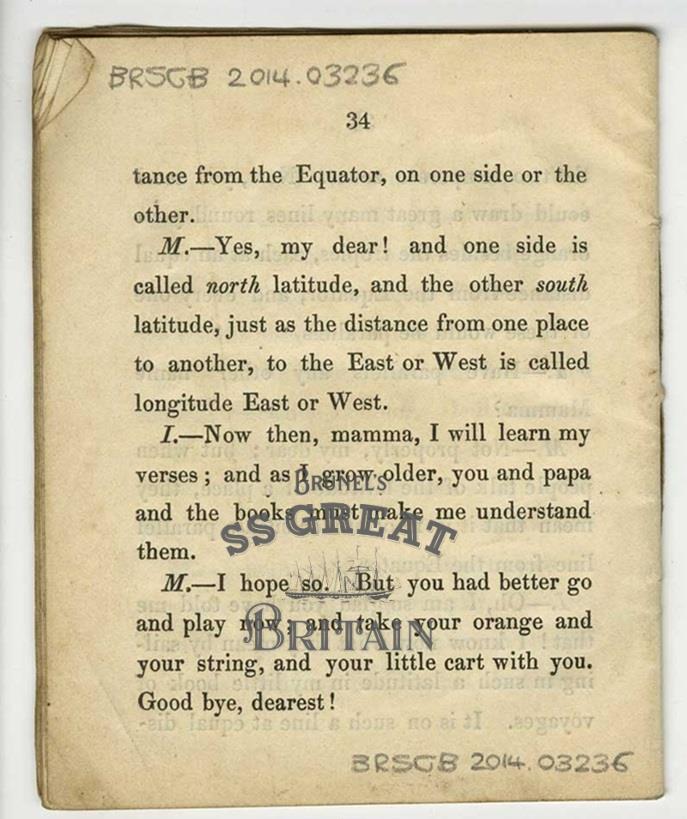 BRSGB 2014.03236
34
tance from the Equator, on one side or the
other.
M.—Yes, my dear! and one side is
called north latitude, and the other south
latitude, just as the distance from one place
to another, to the East or West is called
longitude East or West.
I.—Now then, mamma, I will learn my
verses; and as I grow older, you and papa
and the books must make me understand
them.
M.—I hope so. But you had better go
and play now; and take your orange and
your string, and your little cart with you.
Good bye, dearest!
BRUNEL'S
SS GREAT
BRITAIN
BRSGB 2014.03236